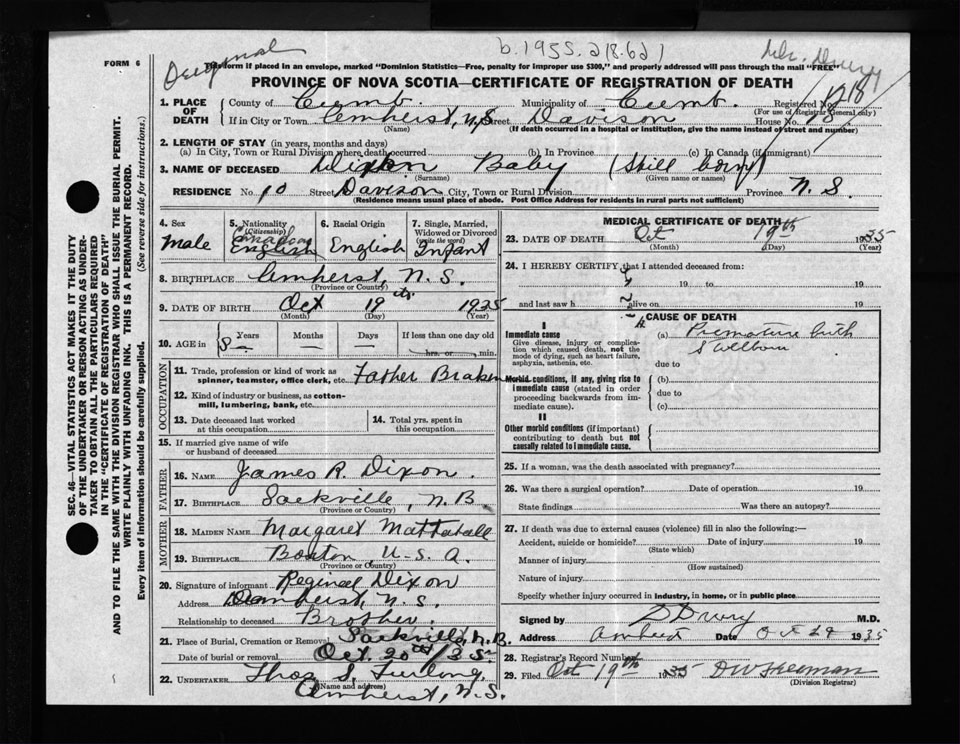 b.1955.218.621
Original
Dr. Drury
FORM 6
This form if placed in an envelope, marked "Dominion Statistics—Free, penalty for improper use $300," and properly addressed will pass through the mail "FREE"
PROVINCE OF NOVA SCOTIA—CERTIFICATE OF REGISTRATION OF DEATH
1. PLACE OF DEATH County of Cumb. Municipality of Cumb. Registered No. 1218
(For use of Registrar General only)
If in City or Town Amherst, N.S. Street Davison House No. 10
(Name) (If death occurred in a hospital or institution, give the name instead of street and number)
2. LENGTH OF STAY (in years, months and days)
(a) In City, Town or Rural Division where death occurred (b) In Province (c) In Canada (if immigrant)
3. NAME OF DECEASED Dixon Baby (Still born)
(Surname) (Given name or names)
RESIDENCE No. 10 Street Davison City, Town or Rural Division Province N. S.
(Residence means usual place of abode. Post Office Address for residents in rural parts not sufficient)
4. Sex Male
5. Nationality (Citizenship) Canadian English
6. Racial Origin English
7. Single, Married, Widowed or Divorced (write the word) Infant
8. BIRTHPLACE Amherst, N. S.
(Province or Country)
9. DATE OF BIRTH Oct 19 th 1935
(Month) (Day) (Year)
10. AGE in Years Months Days If less than one day old
hrs. or min.
OCCUPATION
11. Trade, profession or kind of work as spinner, teamster, office clerk, etc. Father Brakeman
12. Kind of industry or business, as cotton-mill, lumbering, bank, etc.
13. Date deceased last worked at this occupation
14. Total yrs. spent in this occupation
15. If married give name of wife or husband of deceased
FATHER
16. NAME James R. Dixon
17. BIRTHPLACE Sackville, N. B.
(Province or Country)
MOTHER
18. MAIDEN NAME Margaret Mattatall
19. BIRTHPLACE Boston U. S. A.
(Province or Country)
20. Signature of informant Reginal Dixon
Address Amherst, N. S.
Relationship to deceased Brother
21. Place of Burial, Cremation or Removal Sackville, N. B.
Date of burial or removal Oct. 20th /35
22. UNDERTAKER Thos S. Furlong
(Name and address)
Amherst, N. S.
MEDICAL CERTIFICATE OF DEATH
23. DATE OF DEATH Oct 19th 1935
(Month) (Day) (Year)
24. I HEREBY CERTIFY that I attended deceased from:
19 to 19
and last saw h alive on 19
CAUSE OF DEATH
I
Immediate cause
Give disease, injury or complication which caused death, not the mode of dying, such as heart failure, asphyxia, asthenia, etc.
(a) Premature birth
Stillborn
due to
Morbid conditions, if any, giving rise to immediate cause (stated in order proceeding backwards from immediate cause)
(b)
due to
(c)
II
Other morbid conditions (if important) contributing to death but not causally related to immediate cause.
25. If a woman, was the death associated with pregnancy?
26. Was there a surgical operation? Date of operation 19
State findings Was there an autopsy?
27. If death was due to external causes (violence) fill in also the following:—
Accident, suicide or homicide? Date of injury 19
(State which)
Manner of injury
(How sustained)
Nature of injury
Specify whether injury occurred in industry, in home, or in public place
Signed by D Drury M.D.
Address Amherst Date Oct 29 1935
28. Registrar's Record Number
29. Filed Oct 19th 1935
(Division Registrar)
SEC. 46—VITAL STATISTICS ACT MAKES IT THE DUTY
OF THE UNDERTAKER OR PERSON ACTING AS UNDER-
TAKER TO OBTAIN ALL THE PARTICULARS REQUIRED
IN THE "CERTIFICATE OF REGISTRATION OF DEATH"
AND TO FILE THE SAME WITH THE DIVISION REGISTRAR WHO SHALL ISSUE THE BURIAL PERMIT.
WRITE PLAINLY WITH UNFADING INK. THIS IS A PERMANENT RECORD.
Every item of information should be carefully supplied. (See reverse side for instructions.)